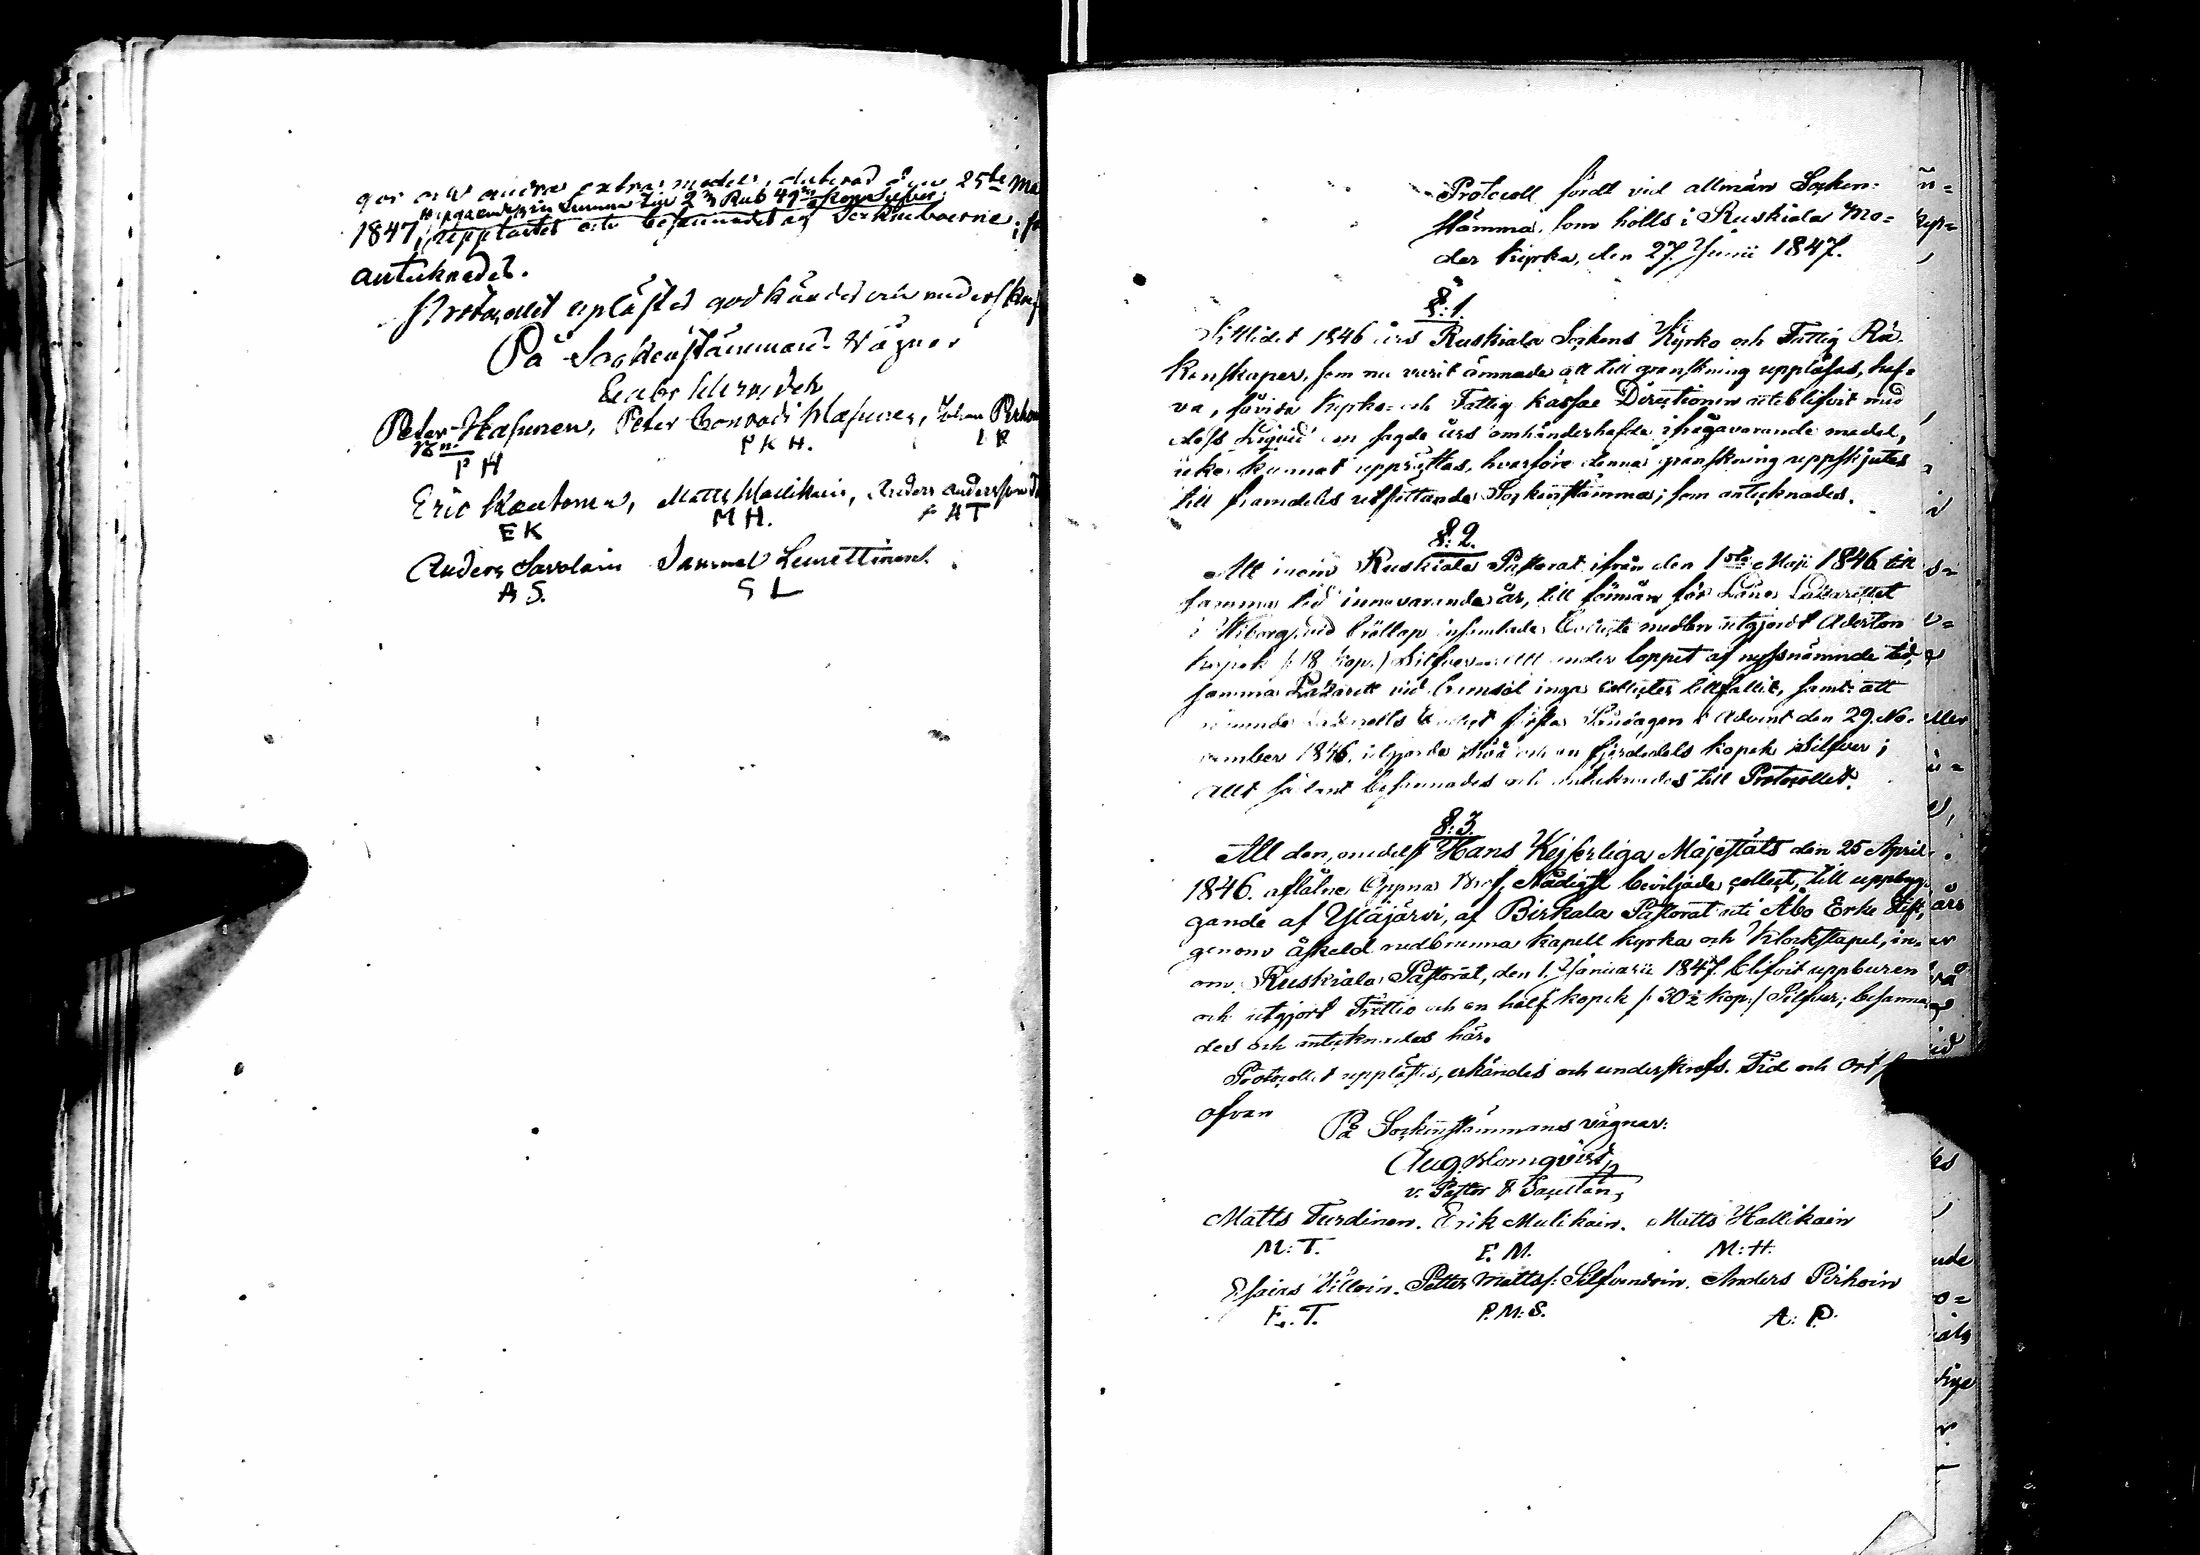 gor och andra extra medel, daterad den 25te Ma
uppgående till Summa 23 Rub 49 kop Silfver
1847, upplästes och besannades af Sockneboerne; 
antecknades.
Protocollet uplästes godkändes och underskref
På Sockenstämmans Vägnar
Peter Hasunen, Peter Conradi Hasunen, Johan Pirho
P H P K H. I P
Eric Kautonen, Matts Hallikain, Anders Andersson
E K M H. A T
Anders Savolain Samuel Lenettinen.
A S. S L
Protocoll fördt vid allmän Socken-
stämma, som hölls i Ruskiala Mo-
der kyrka, den 27. Junii 1847.
§: 1.
1846 års Ruskiala Sockens Kyrko och Fattig Rä-
kenskaper, som nu varit ämnade att till granskning uppläsas, haf-
va, såvida Kyrko- och Fattig kassae Directionen icke blifvit med
dess sagde års omhänderhafde ifrågavarande medel,
icke kunnat upprättas, hvarföre denna granskning uppskjutes
till framdeles utsättande Sockenstämma; som antecknades.
§: 2.
Att inom Ruskiala Pastorat ifrån den 1sta Maji 1846 till
samma tid innevarande år, till förmån för Läns Lazarettet
i Wiborg, vid bröllop insamlade Collecte medlen utgjordt Aderton
kopek /: 18 kop:/ Silfver att under loppet af nyssnämnde tid,
samma Lazarett vid barnsöl inga collecter tillfallit, samt att
nämnde Lazaretts Collect första Söndagen i Advent den 29. No-
vember 1846, utgjorde två och en fjerdedels kopek Silfver;
Allt sådant besannades och antecknades till Protocollet.
§: 3.
Att den, medelst Hans Kejserliga Majestäts den 25 April
1846. aflåtne Öppna Bref, Nådigst beviljade collect, till uppbyg-
gande af Ylöjärvi, af Birkala Pastorat uti Åbo Erke Stift,
genom åskeld nedbrunna kapell kyrka och Klockstapel, in-
om Ruskiala Pastorat, den 1. Januarii 1847. blifvit uppburen
och utgjort Trettio och en half kopek /: 30½ kop:/ Silfver; besanna-
des och antecknades här.
Protocollet upplästes, erkändes och underskrefs. Tid och Ort s
ofvan
På Sockenstämmans vägnar:
Aug. Blomqvist
v. Pastor
Matts Turdinen. Erik Mulikain. Matts Hallikain
M: T. E. M. M: H.
Esaias Tillain. Petter Matts s: Silfvendoin. Anders Pirhoin
E. T. P. M: S. A: P.